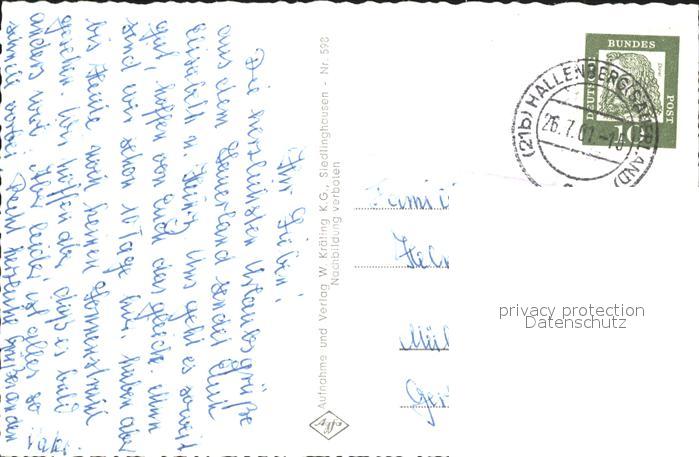 Ihr Lieben!
Die herzlichsten Urlaubsgrüße
aus dem Sauerland sendet Euch
Elisabeth u. Heinz. Uns geht es soweit
gut, hoffen von Euch das gleiche. Nun
sind wir schon 10 Tage hier, haben aber
bis heute noch keinen Sonnenstrahl
gesehen. Wir hoffen aber, daß es bald
anders wird. Aber leider ist alles so
schnell vorbei. Recht herzliche Grüße an den
Aufnahme und Verlag W. Kräling K.G., Siedlinghausen - Nr. 598
Nachbildung verboten
effka
Famil
Hel
Mül
Ger
DEUTSCHE
BUNDES
POST
Dürer
10
(21b) HALLENBERG (SAUERLAND)
26.7.61-18
privacy protection
Datenschutz